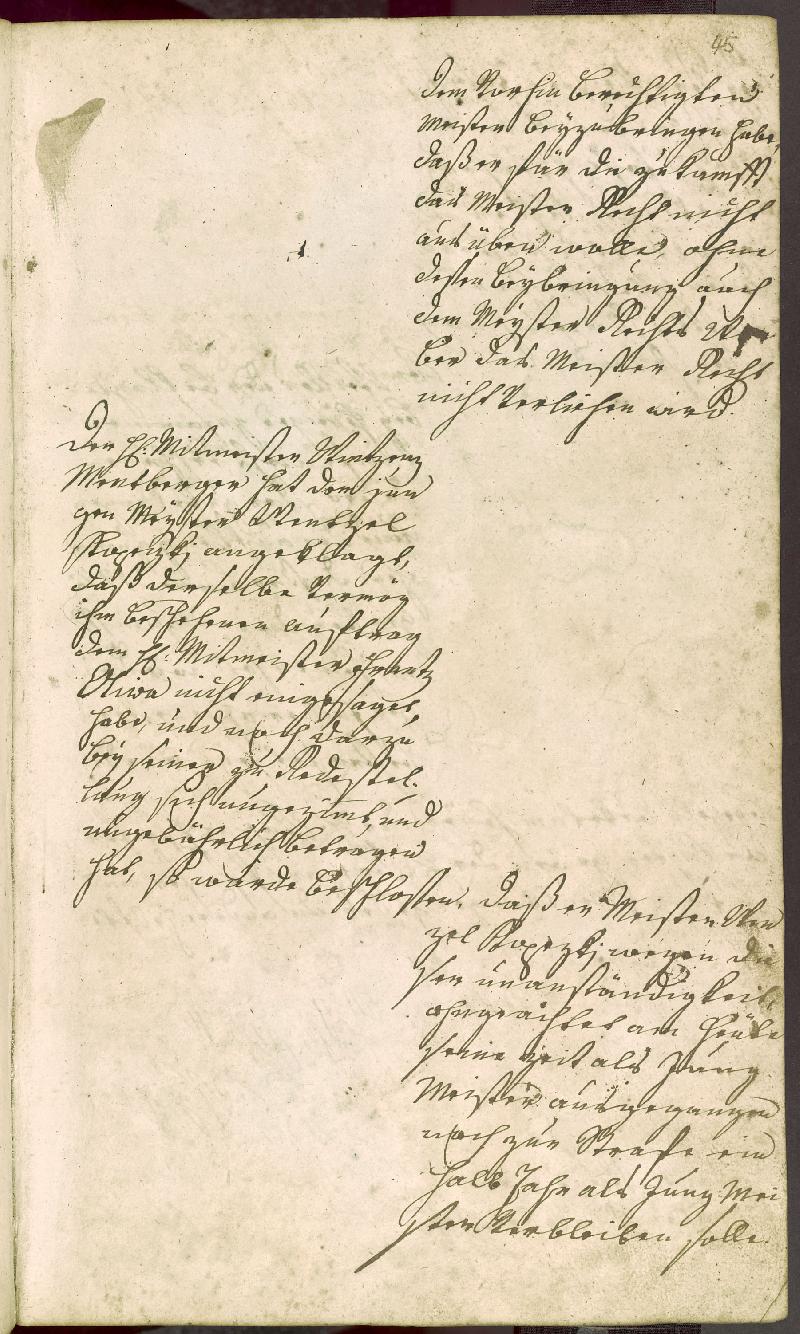 45
dem Vorhin berechtigten
Meister beyzubringen habe,
daß er für die zukunfft
das Meister Recht nicht
ausüben wolle, ohne
dessen beybringung auch
dem Meyster Rechts Wer
ber das Meister Recht
nicht Verliehen wird.
Der H: Mitmeister Vintzenz
Mensberger hat den jun
gen Meyster Wentzel
Kopezkj angeklagt,
daß derselbe Vermög
ihm beschehenen auftrag
dem H: Mitmeister Frantz
nicht eingesaget
habe, und noch darzu
bey seiner zu Redestel-
lung sich ungeziemt, und
ungebührlich betragen
hat, so wurde beschlossen, daß er Meister Wen
zel Kopezkj wegen die
ser unanständigkeit,
ohngeachtet am heute
seine Zeit als Jung
Meister ausgegangen
noch zur Strafe ein
halb Jahr als Jung Mei
ster Verbleiben solle.